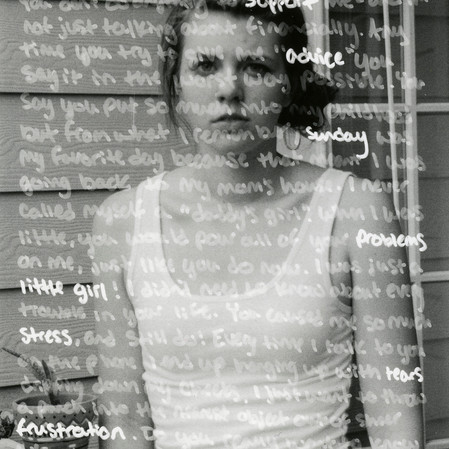 you can't to support me
not just talking about financially. Any
time you try to give me "advice" you
say it in the most way possible. You
say you put so much into my
but from what I remember sunday was
my favorite day because that I was
going back to my mom's house. I never
called myself a "daddy's girl". When I was
little, you would pour all of your problems
on me, just like you do now. I was just a
little girl! I didn't need to know about every
trouble in your life. You caused me so much
stress, and still do! Every time I talk to you
on the phone I end up hanging up with tears
down my cheeks. I just want to throw
a into the nearest object
frustration. Do you really know